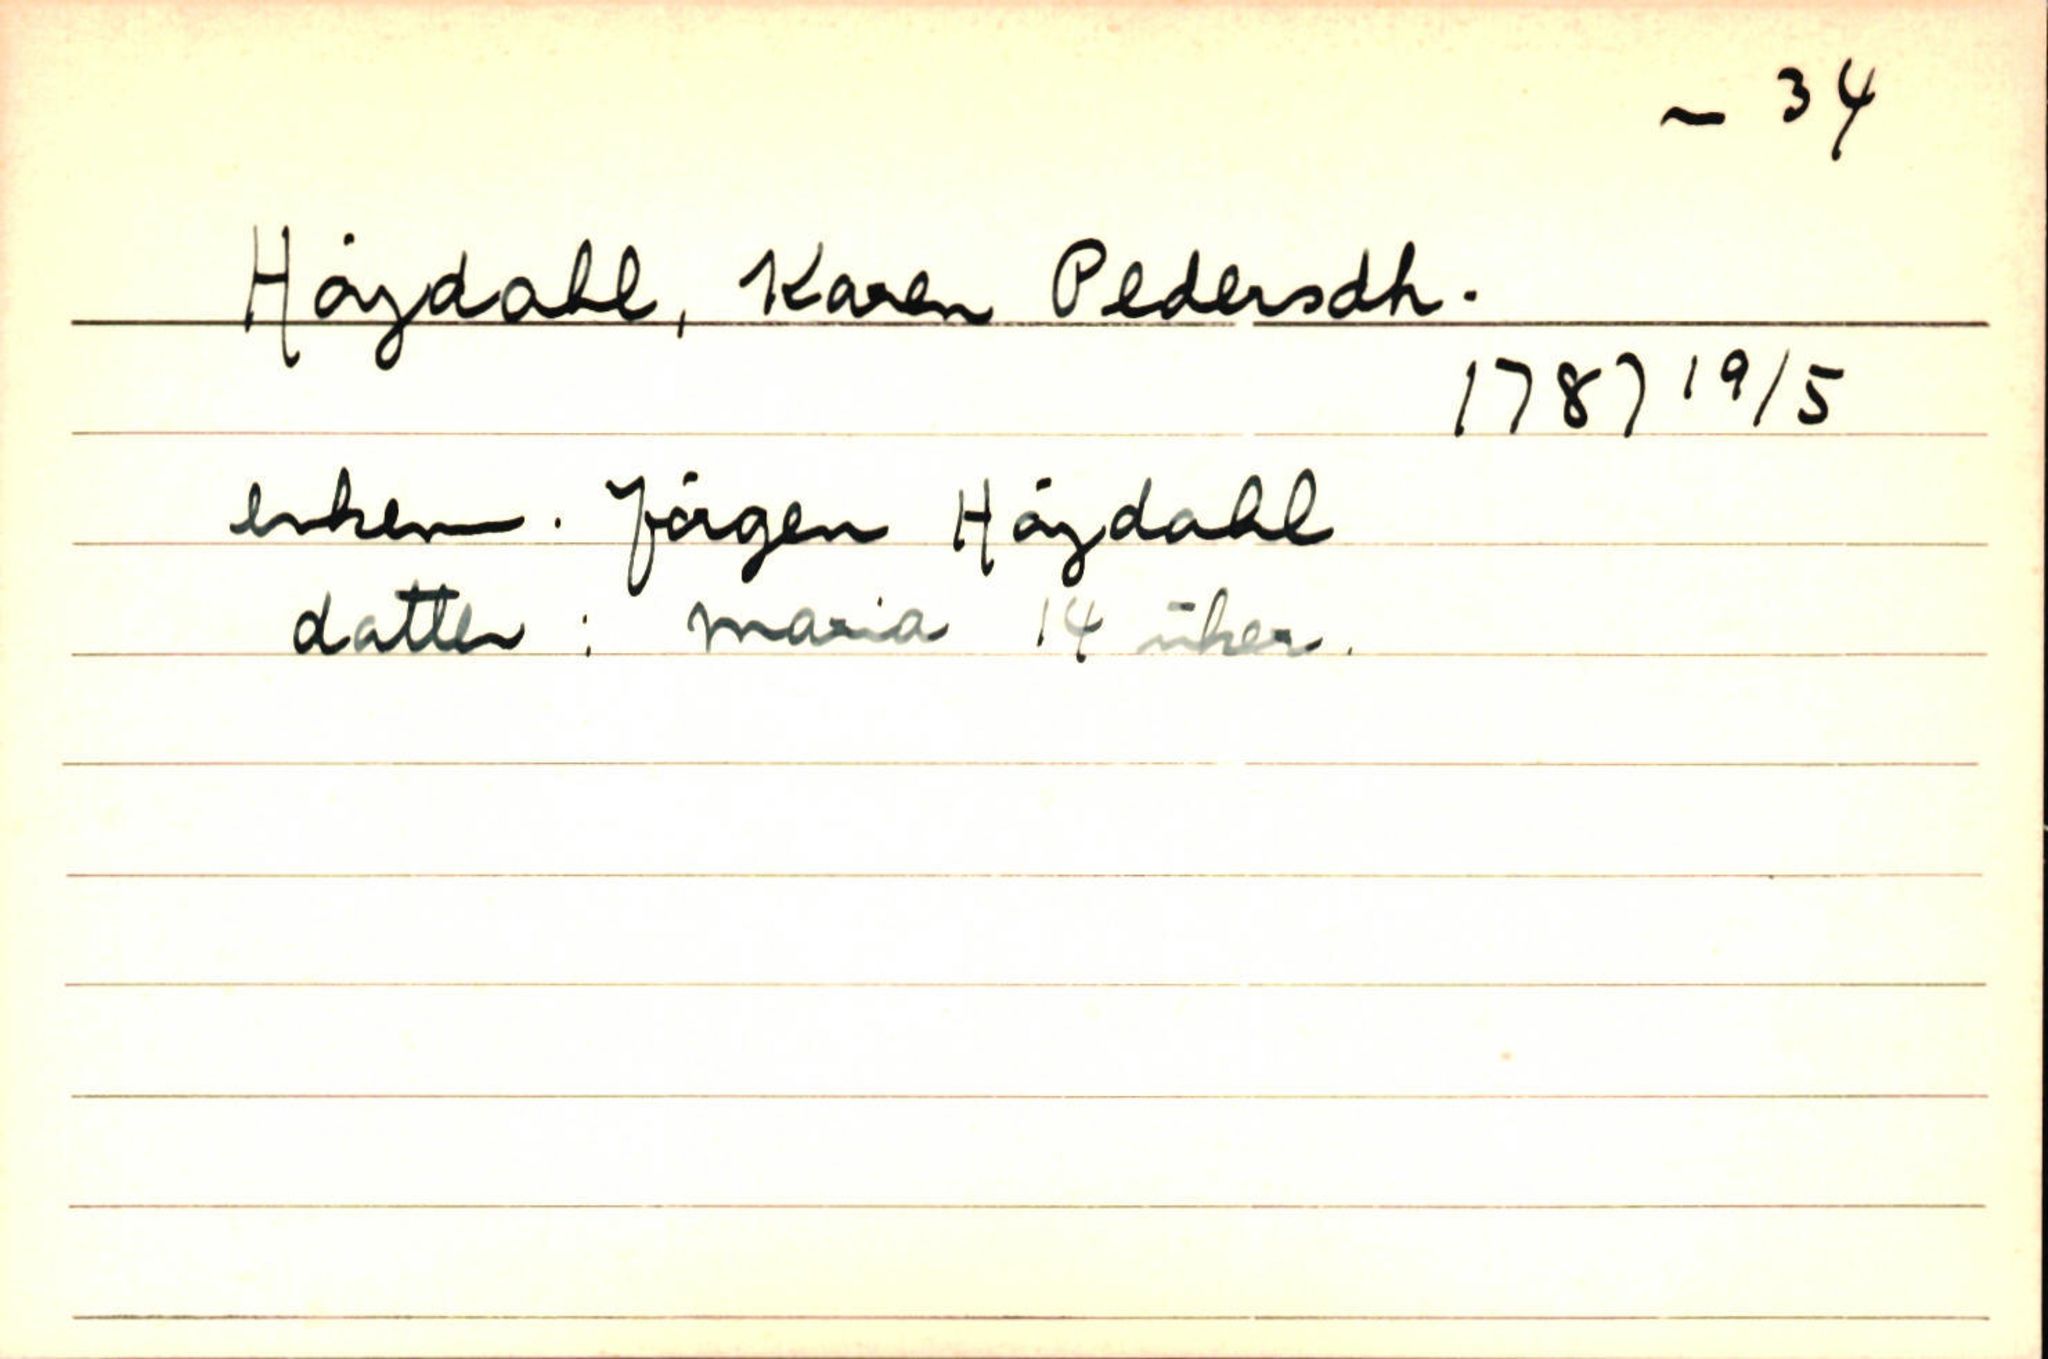 ~ 34
Høydahl, Karen Pedersdh.
1787 19/5
enkem. Jørgen Høydahl
datter : Maria 14 uker.